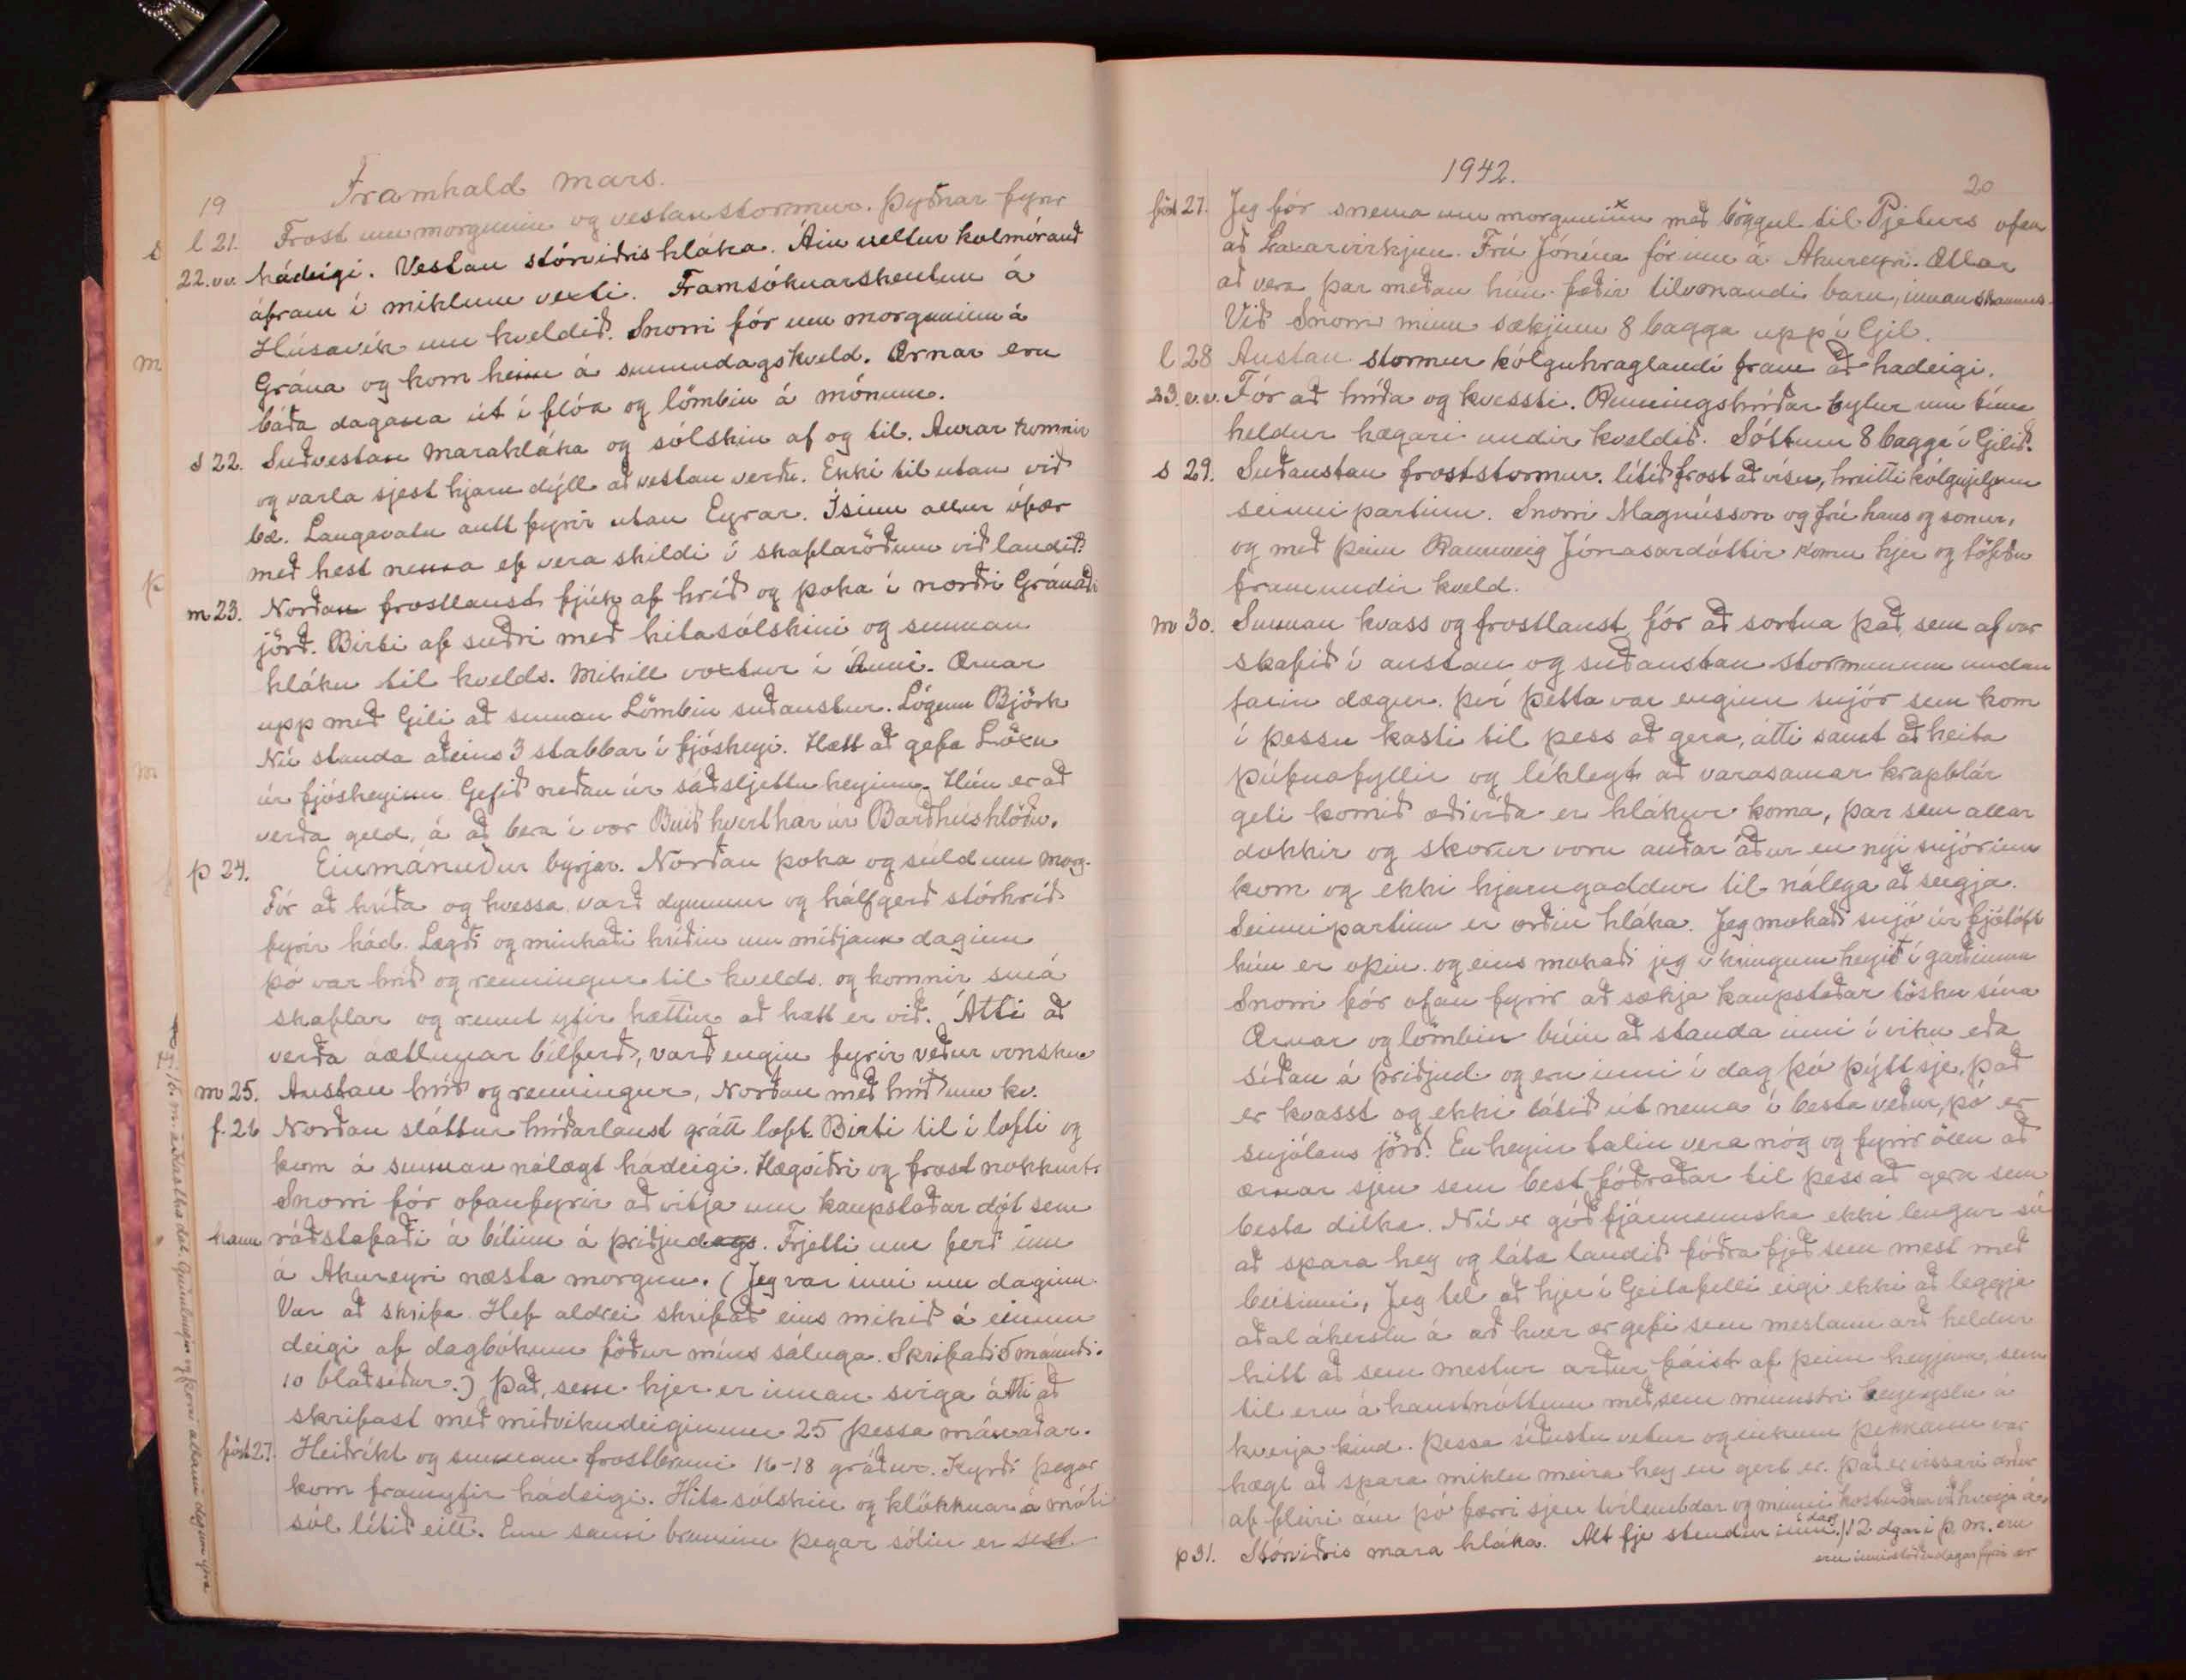 19
Framhald mars.
l 21. Frost um morguninn og vestanstormur. Þyðnar fyrir
22. vv. hádeigi. Vestan stórviðris hláka. Áin veltur kolmórauð
áfram í miklum vexti. Framsóknarskemtun á
Húsavík um kveldið. Snorri fór um morguninn á
Grána og kom heim á sunnudagskveld. Ærnar eru
báða dagana út í flóa og lömbin á mónum.
s 22. Suðvestan marahláka og sólskin af og til. Aurar komnir
og varla sjest hjarn dýll að vestan verðu. Ekki til utan við
bæ. Langavatn autt fyrir utan Eyrar. Ísinn allur ófær
með hest nema ef vera skildi í skaflaröðum við landið.
m 23. Norðan frostlaust fjúk af hríð og þoka í norðri Gránaði
jörð. Birti af suðri með hitasólskini og sunnan
hláku til kvelds. Mikill voxtur í ánni. Ærnar
upp með Gili að sunnan Lömbin suðaustur. Lógum Björk
Nú standa aðeins 3 stabbar í fjósheyi. Hætt að gefa
úr fjósheyinu Gefið neðan úr sáðsljettu heyinu. Hún er að
verða geld, á að bera í vor Buið hvert hár úr Barðhúshlöðu.
þ 24. Einmánuður byrjar. Norðan þoka og súld um morg.
Fór að hríða og hvessa varð dymmur og hálfgerð stórhríð
fyrir hád. Lægði og minkaði hríðin um miðjann daginn
þó var hríð og renningur til kvelds og komnir smá
skaflar og rennt yfir hættur að hætt er við. Átti að
verða áætlunar bílferð, varð engin fyrir veður vonsku
m 25. Austan hríð og renningur, Norðan með hríð um kv.
f. 26 Norðan sláttur hríðarlaust grátt loft. Birti til í lofti og
kom á sunnan nálægt hádeigi. Hægviðri og frost nokkurt.
Snorri fór ofanfyrir að vitja um kaupstaðar dót sem
hann ráðstafaði á bílinn á þriðjudags. Frjetti um ferð inn
á Akureyri næsta morgun. (Jeg var inni um daginn.
Var að skrifa. Hef aldrei skrifað eins mikið á einum
deigi af dagbókum föður míns sáluga. Skrifaði 5 mánuði.
10 blaðsíður.) Það, sem hjer er innan sviga átti að
skrifast með miðvikudeiginum 25 þessa mánaðar.
föst 27. Heiðríkt og sunnan frostbruni 16-18 gráður. Kyrði þegar
kom framyfir hádeigi. Hita sólskin og klökknar á móti
sól lítið eitt. Enn sami bruninn þegar sólin er sest
1942.
20
föst 27. Jeg fór snema um morguninn með böggul til Pjeturs ofan
að Laxarvirkjun. Frú Jónína fór inn á Akureyri. Ætlar
að vera þar meðan hún fæðir tilvonandi barn, innan skamms.
Við Snorri minn sækjum 8 bagga upp í Gil.
l 28 Austan stormur kólguhraglandi fram að hadeigi.
23. v.v. Fór að hríða og kvessti. Renningshríðar bylur um tíma
heldur hægari undir kveldið. Sóttum 8 bagga í Gilið.
s 29. Suðaustan froststormur. lítið frost að vísu, hreitti kólgujeljum
seinni partinn. Snorri Magnússon og frú hans og sonur,
og með þeim Rannveig Jónasardóttir komu hjer og töfðu
framundir kveld.
m 30. Sunnan kvass og frostlaust, fór að sortna það, sem af var
skafið í austan og suðaustan storminum undan
farin dægur. því þetta var enginn snjór sem kom
í þessu kasti til þess að gera, átti samt að heita
þúfnafyllir og líklegt að varasamar krapblár
geti komið æði víða er hlákur koma, þar sem allar
dokkir og skorur voru auðar áður en nýi snjórinn
kom og ekki hjarngaddur til nálega að seigja.
Seinnipartinn er orðin hláka. Jeg mokaði snjó úr fjótóft
hún er opin og eins mokaði jeg í kringum heyið í garðinum
Snorri fór ofan fyrir að sækja kaupstaðar tösku sína
Ærnar og lömbin búin að standa inni í viku eða
síðan á þriðjud. og eru inni í dag þó þýtt sje, það
er kvasst og ekki látið út nema í besta veður, þó er
snjólaus jörð. En heyin talin vera nóg og fyrir öllu að
ærnar sjeu sem best fóðraðar til þess að gera sem
besta dilka. Nú er góð fjármennska ekki lengur sú
að spara hey og láta landið fóðra fjeð sem mest með
beitinni, Jeg tel að hjer í Geitafelli eigi ekki að leggja
aðal áherslu á að hver ær gefi sem mestann arð heldur
hitt að sem mestur arður fáist af þeim heyjum, sem
til eru á haustnóttum með sem minnstri heyeyslu á
hverja kind. Þessa síðustu vetur og einkum þennann var
hægt að spara miklu meira hey en gert er. Það er vissari arður
af fleiri ám þó færri sjeu tvílembdar og minni kostnaður við hverja á.
þ 31. Stórviðris mara hláka. Alt fje stendur inni í dag. 12 dgar í þ. m. eru
eru innistöðudagar fyrir ær